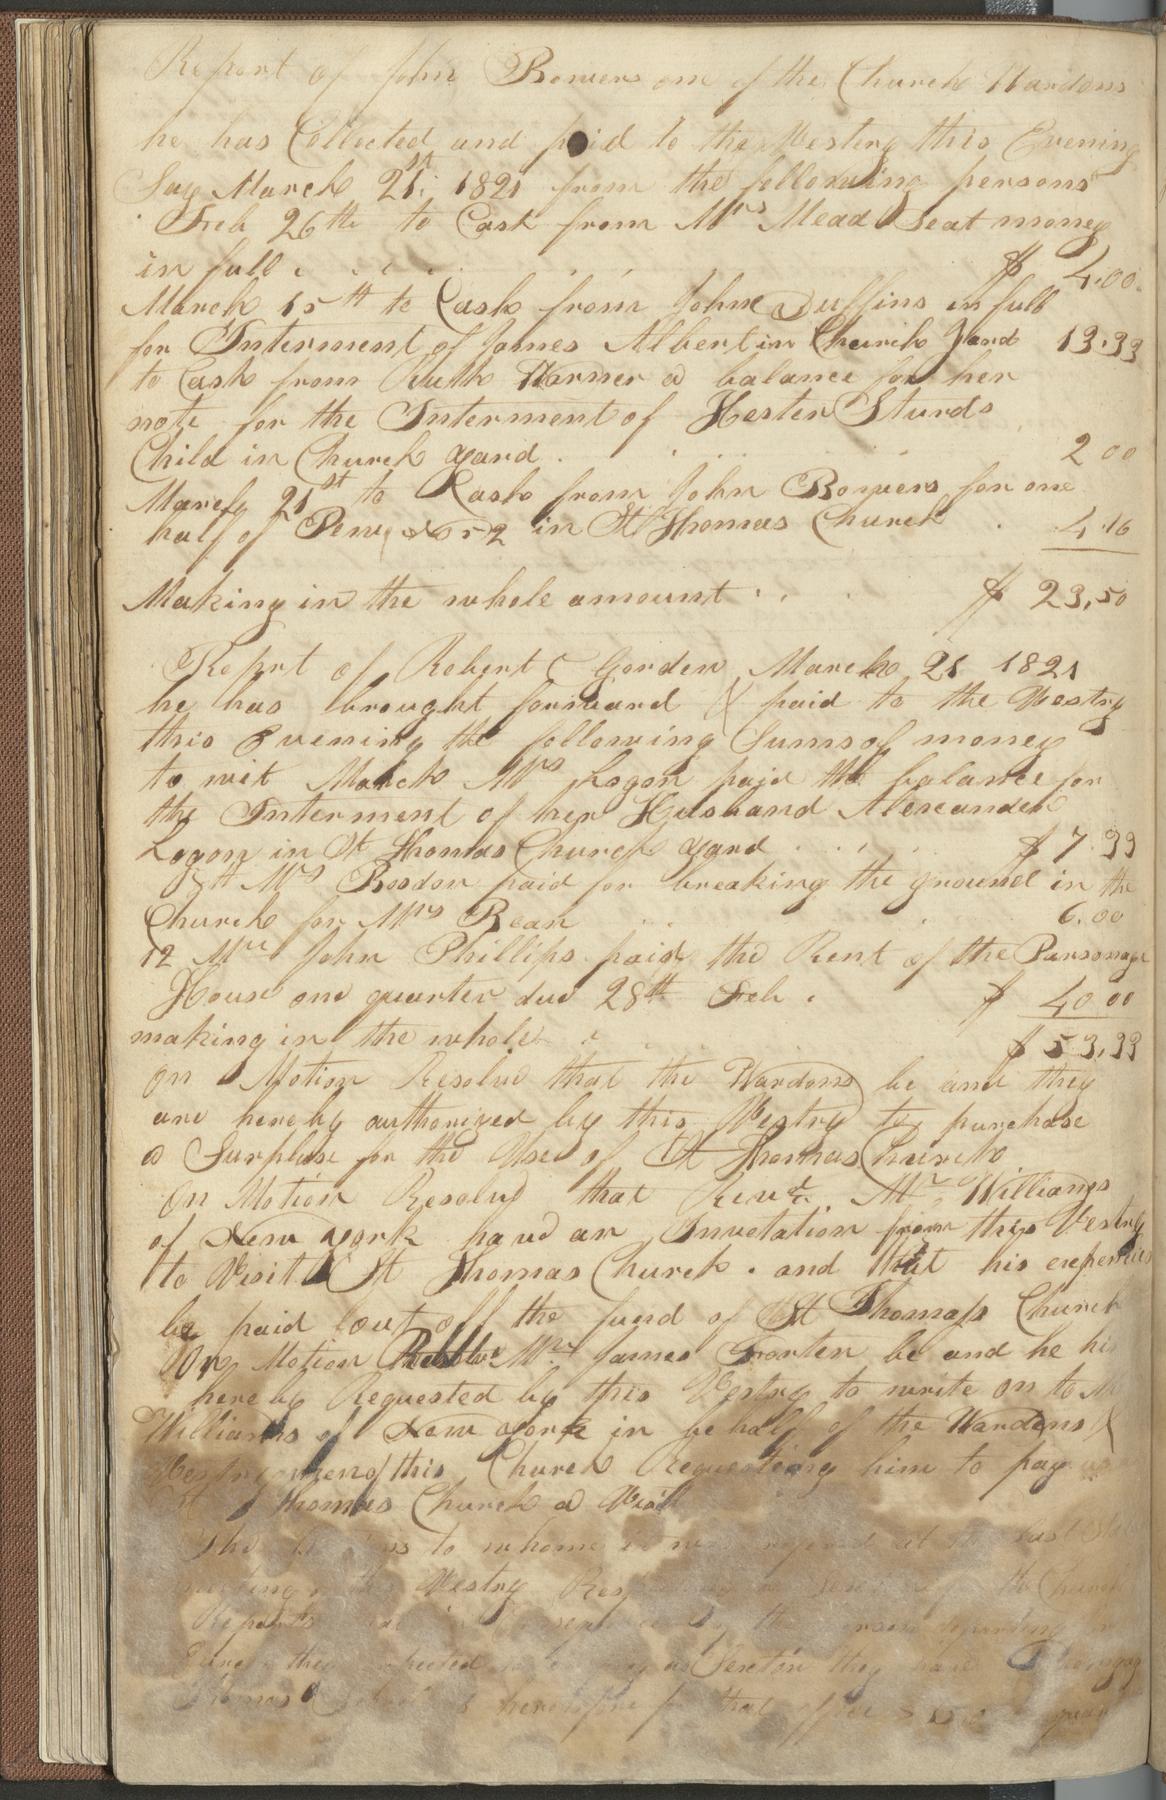 Report of John Bowers one of the Church Wardons
he has Collected and paid to the Vestry this Evening
Say March 21st 1821 from the following persons
Feb 26th to Cash from Mrs Mead Seat money
in full . . . . $ 4.00.
March 15th to Cash from John Duffins in full
for Interment of James Albert in Church Yard 13.33
to Cash from Ruth Warner a balance for her
note for the Interment of Hester Sturds
Child in Church yard . . . . 2 00
March 21st to Cash from John Bowers for one
half of Pew No 52 in St Thomas Church . 4.16
Making in the whole amount . . . $ 23,50
Report of Robert C Gorden March 21 1821
he has brought forward & paid to the Vestry
this Evening the following Sums of money
to wit March Mrs Logon paid the balance for
the Interment of her Husband Alexander
Logon in St Thomas Church yard . . . $ 7.33
Mrs Bosdon paid for breaking the ground in the
Church for Mrs Bean 6.00
12 Mr John Phillips paid the Rent of the Parsonage
House one quarter due 28th Feb . $ 40 00
making in the whole . . . $ 53,33
On Motion Resolve that the Wardons be and they
are hereby authorized by this Vestry to purchase
a Surpluse for the Use of St Thomas Church
On Motion Resolvd that Revd. Mr. Williams
of New york have an Invetation from this Vestry
to Visit St Thomas Church . and that his expencies
be paid out off the fund of St Thomass Church
On Motion Mr James Forten be and he his
hereby Requested by this Vestry to write on to Mr
Williams of New york in behalf of the Wardens &
Vestrymen of this Church Requesteing him to pay
St Thomas Church a Visit
The to whome it was at last
meeting Vestry Church
Reports the
they as Sexton they have
Thomas heretofore for that office